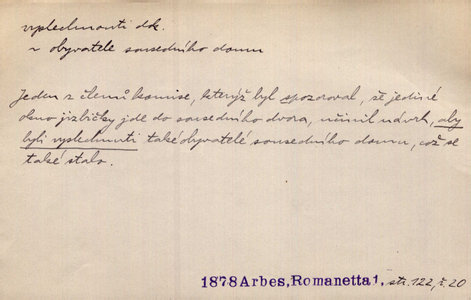 vyslechnouti dok.
~ obyvatele sousedního domu
Jeden z členů komise, kterýž byl zpozoroval, že jediné
okno jizbičky jde do sousedního dvora, učinil návrh, aby
byli vyslechnuti také obyvatelé sousedního domu, což se
také stalo.
1878 Arbes, Romanetta 1, str. 122, ř. 20